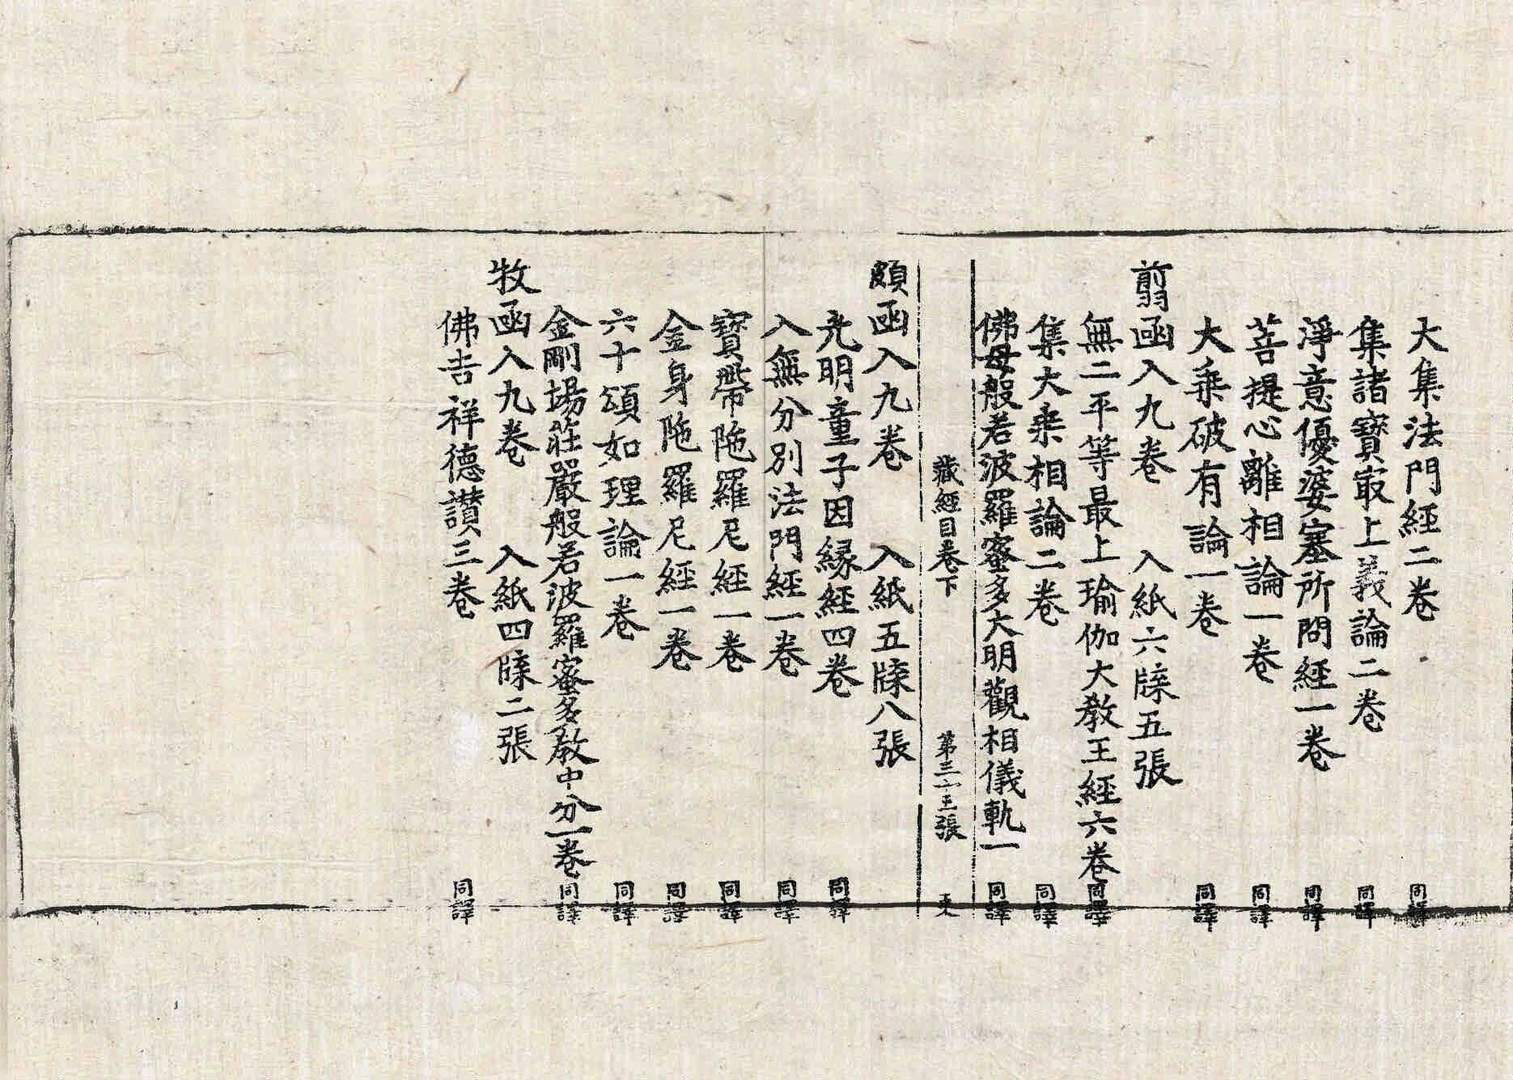 大集法門經二卷 同譯
集諸寶冣上義論二卷 同譯
淨意優婆塞所問經一卷 同譯
菩提心離相論一卷 同譯
大乘破有論一卷 同譯
翦函入九卷 入紙六牒五張
無二平等最上瑜伽大教王經六卷 同譯
集大乘相論二卷 同譯
佛母般若波羅蜜多大明觀相儀軌一 同譯
藏經目卷下 第三十王張
頗函入九卷 入紙五牒八張
光明童子因縁經四卷 同譯
入無分別法門經一卷 同譯
寶帶陁羅尼經一卷 同譯
金身陁羅尼經一卷 同譯
六十頌如理論一卷 同譯
金剛場莊嚴般若波羅蜜多教中分一卷 同譯
牧函入九卷 入紙四牒二張
佛吉祥德讃三卷 同譯